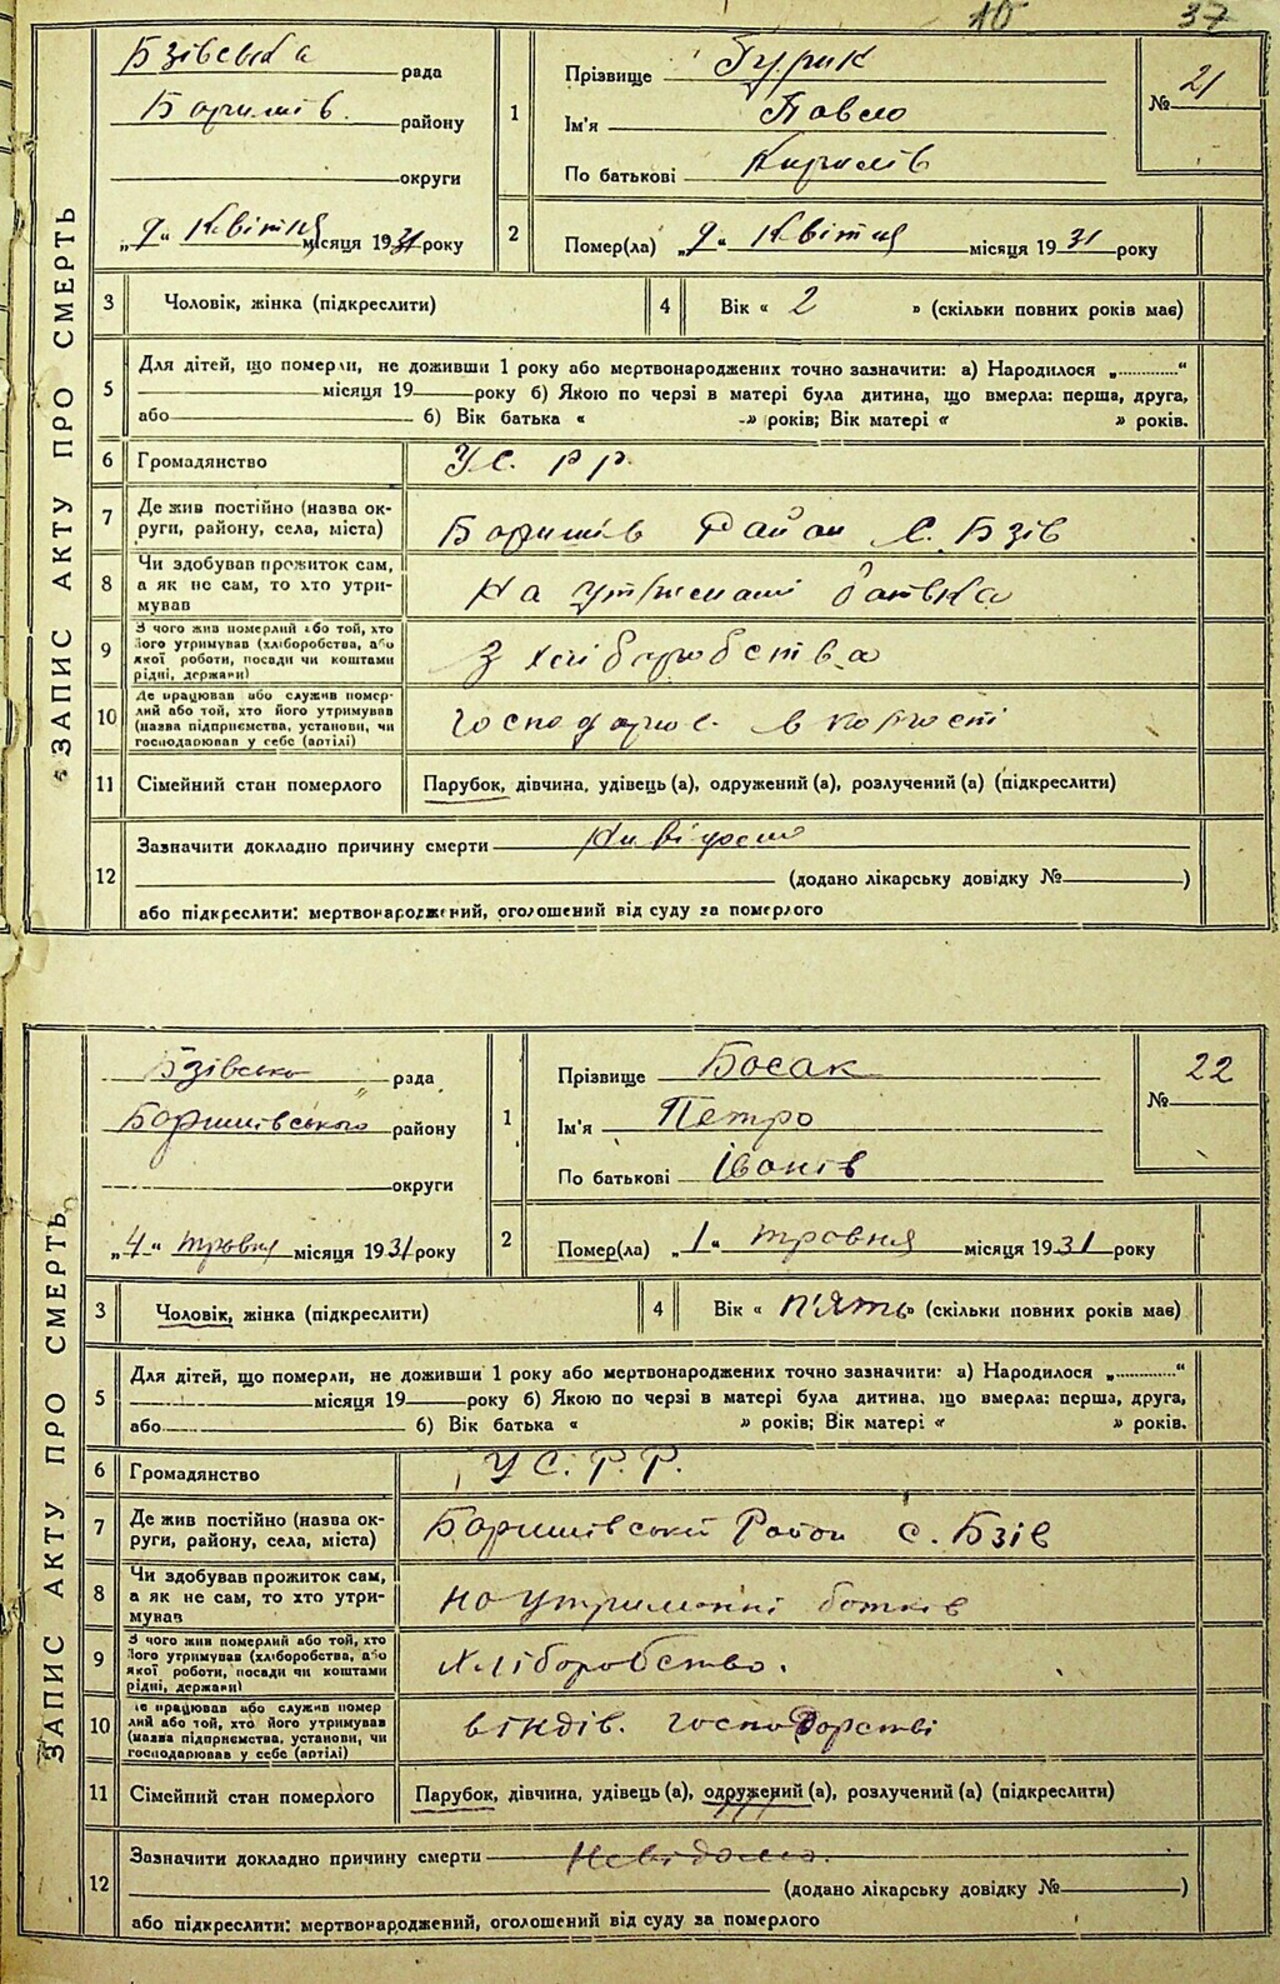 10 37
Бзівська рада
Баришів. району
округи
„9“ Квітня місяця 1931 року
ЗАПИС АКТУ ПРО СМЕРТЬ
1 Прізвище Гурик
Ім'я Павло
По батькові Кирилів
№ 21
2 Помер(ла) „9“ Квітня місяця 1931 року
3 Чоловік, жінка (підкреслити)
4 Вік « 2 » (скільки повних років має)
5 Для дітей, що померли, не доживши 1 року або мертвонароджених точно зазначити: а) Народилося „.............“
місяця 19 року б) Якою по черзі в матері була дитина, що вмерла: перша, друга,
або б) Вік батька « » років; Вік матері « » років.
6 Громадянство У.С.Р.Р.
7 Де жив постійно (назва ок-
руги, району, села, міста) Баришів Район С. Бзів
8 Чи здобував прожиток сам,
а як не сам, то хто утри-
мував На утриманні батька
9 З чого жив померлий або той, хто
його утримував (хліборобства, або
якої роботи, посади чи коштами
рідні, держави) З хліборобства
10 Де працював або служив помер-
лий або той, хто його утримував
(назва підприємства, установи, чи
господарював у себе (артілі)
11 Сімейний стан померлого Парубок, дівчина, удівець (а), одружений (а), розлучений (а) (підкреслити)
12 Зазначити докладно причину смерти
(додано лікарську довідку № )
або підкреслити: мертвонароджений, оголошений від суду за померлого
Бзівська рада
Баришівського району
округи
„4“ травня місяця 1931 року
ЗАПИС АКТУ ПРО СМЕРТЬ
1 Прізвище Босак
Ім'я Петро
По батькові Іванів
№ 22
2 Помер(ла) „1“ травня місяця 1931 року
3 Чоловік, жінка (підкреслити)
4 Вік « п'ять » (скільки повних років має)
5 Для дітей, що померли, не доживши 1 року або мертвонароджених точно зазначити: а) Народилося „.............“
місяця 19 року б) Якою по черзі в матері була дитина, що вмерла: перша, друга,
або б) Вік батька « » років; Вік матері « » років.
6 Громадянство У С.Р.Р.
7 Де жив постійно (назва ок-
руги, району, села, міста) Баришівський Район с. Бзів
8 Чи здобував прожиток сам,
а як не сам, то хто утри-
мував на утриманні батків
9 З чого жив померлий або той, хто
його утримував (хліборобства, або
якої роботи, посади чи коштами
рідні, держави) Хліборобство.
10 Де працював або служив помер
лий або той, хто його утримував
(назва підприємства, установи, чи
господарював у себе (артілі) віндів. господорстві
11 Сімейний стан померлого Парубок, дівчина, удівець (а), одружений (а), розлучений (а) (підкреслити)
12 Зазначити докладно причину смерти Невідомо.
(додано лікарську довідку № )
або підкреслити: мертвонароджений, оголошений від суду за померлого